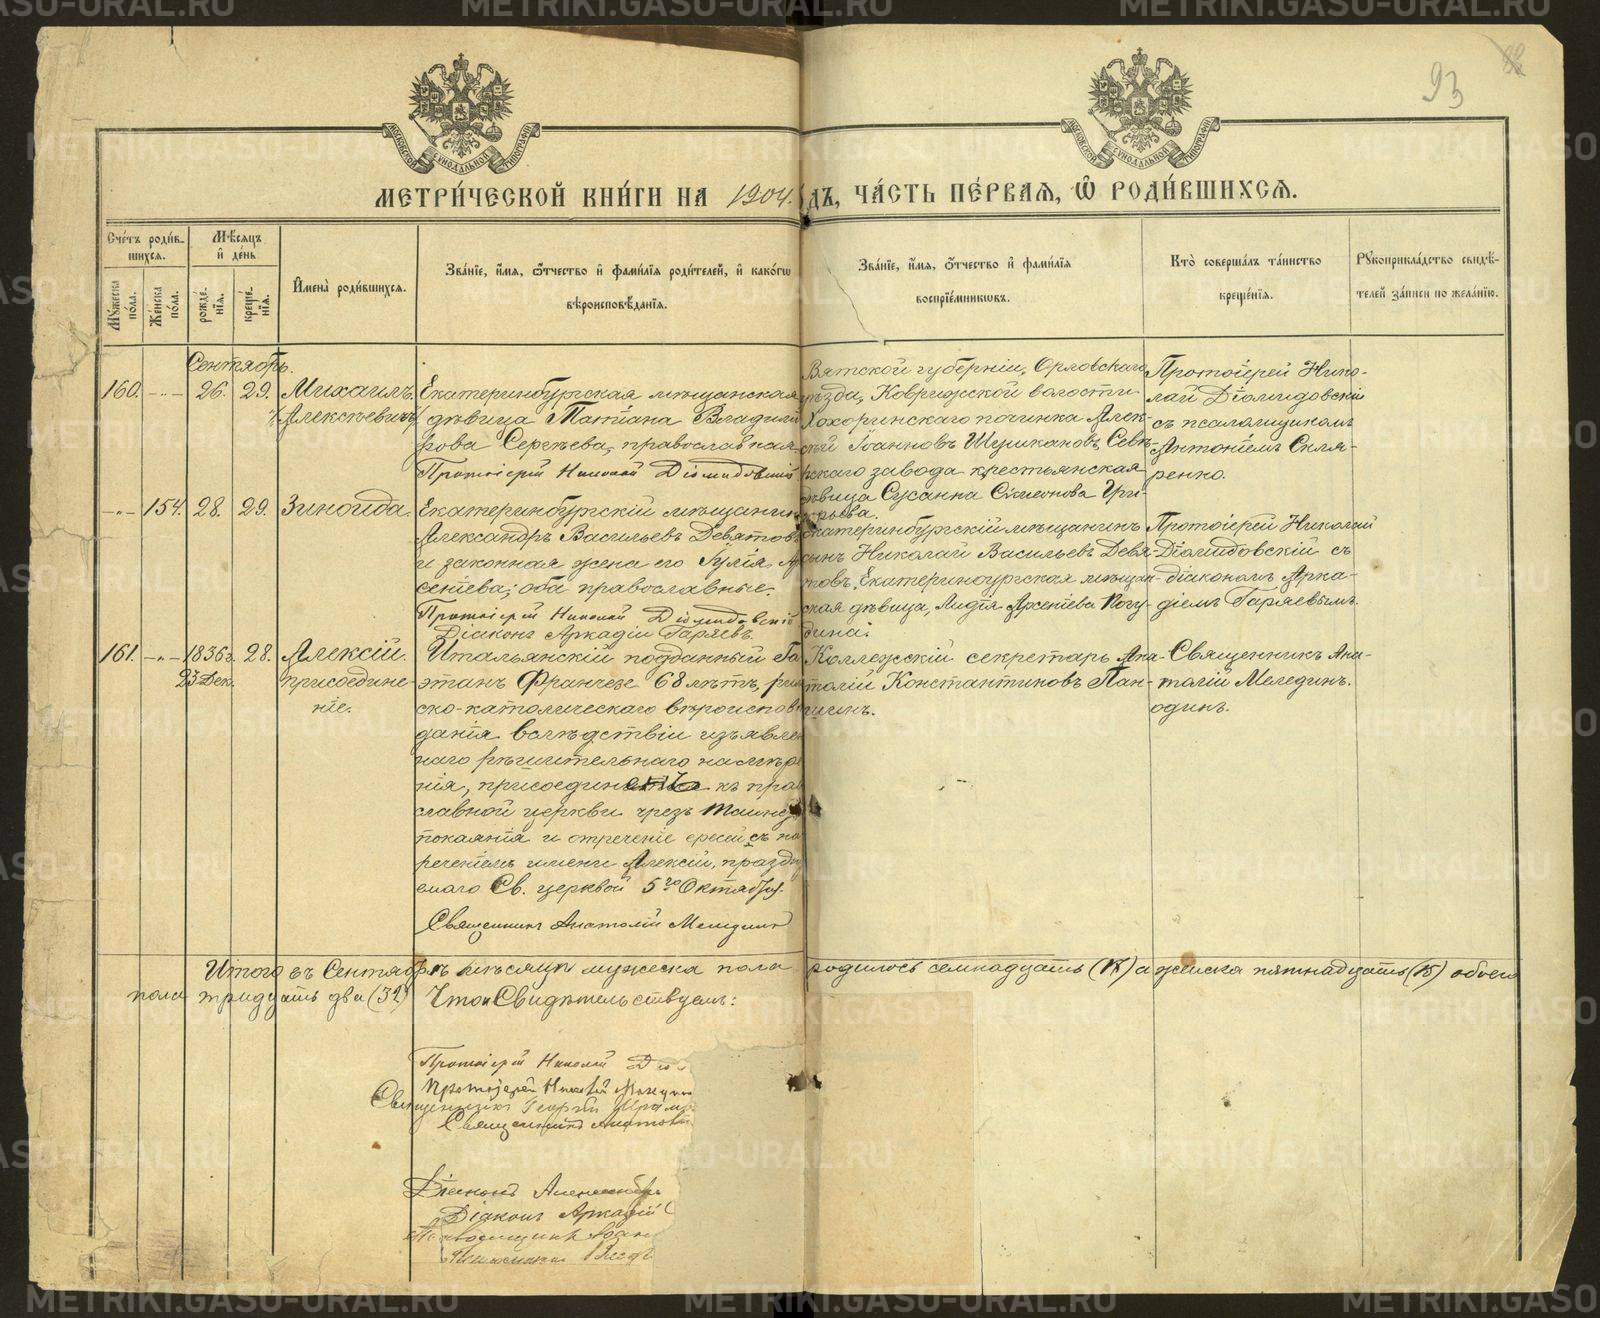 93
МЕТРИ́ЧЕСКОЙ КНИ́ГИ НА 1904. ДЪ, ЧА́СТЬ ПЕ́РВАЯ, Ѡ҆ РОДИ́ВШИХСѦ.
МОСКОВСКОЙ СѴНОДАЛЬНОЙ ТИПОГРАФІИ
МОСКОВСКОЙ СѴНОДАЛЬНОЙ ТИПОГРАФІИ
Сче́тъ роди́в-
шихсѧ.
Мѣ́сѧцъ
и҆ де́нь
Мꙋ́жеска по́ла.
Же́нска по́ла.
рожде́-нїѧ.
креще́-нїѧ.
И҆мена̀ роди́вшихсѧ.
Зва́нїе, и҆́мѧ, ѻ҆́тчество и҆ фами́лїѧ роди́телей, и҆ како́гѡ
вѣроисповѣ́данїѧ.
Зва́нїе, и҆́мѧ, ѻ҆́тчество и҆ фами́лїѧ
воспрїе́мникѡвъ.
Кто̀ соверша́лъ та́инство
креще́нїѧ.
Рꙋкоприкла́дство свидѣ́-
телей за́писи по жела́нїю.
Сентябрь.
160. -"- 26. 29. Михаилъ.
Алексѣевичъ
Екатеринбургская мѣщанская
дѣвица Татіана Владими
рова Сергѣева, православная
Протоіерей Николай Діомидовскій
Вятской губерніи, Орловскаго
ѣзда, Коврижской волости
Хохоринскаго починка Алек-
сѣй Іоанновъ Шушкановъ, Севѣ-
скаго завода крестьянская
дѣвица Сусанна Симеонова Гри-
рьева.
Протоіерей Нико-
лай Діомидовскій
съ псаломщикомъ
Антоніемъ Скля-
ренко.
-"- 154. 28. 29. Зинаида.
Екатеринбургскій мѣщанин
Александръ Васильевъ Девятов
и законная жена его Іулія А
сеніева; оба православные.
Протоіерей Николай Діомидовскій
Діаконъ Аркадій Гаряевъ.
Екатеринбургскій мѣщанинъ
сынъ Николай Васильевъ Девя-
товъ, Екатеринбургская мѣщан-
ская дѣвица, Лидія Арсеніева Погу-
дина.
Протоіерей Николай
Діомидовскій съ
діакономъ Арка-
діемъ Гаряевымъ.
161. -"- 1836г. 28. Алексій.
23 Дек. присоедине-
ніе.
Итальянскій подданный Га
этанъ Франчезе 68 лѣтъ, рим
ско-католическаго вѣроиспов
данія вслѣдствіи изъявлен
наго рѣшительнаго намѣре
нія, присоединенъ къ прав
славной церкви чрезъ таинс
покаянія и отреченіе ересей съ на
реченіемъ имени Алексій, праздну
емаго Св. церквой 5го Октября.
Священникъ Анатолій Меледин
Коллежскій секретарь Ана-
толій Константиновъ Пан-
шинъ.
Священникъ Ана-
толій Мелединъ.
одинъ.
Итого въ Сентябрѣ мѣсяцѣ мужеска пола родилось семнадцать (17) а женска пятнадцать (15) обоего
пола тридцать два (32) Что и Свидѣтельствуемъ:
Протоіерей Николай Діо
Протоіерей
Священникъ Георгій
Священникъ Анатолій
Діаконъ Александръ
Діаконъ Аркадій
Псаломщикъ Іоан